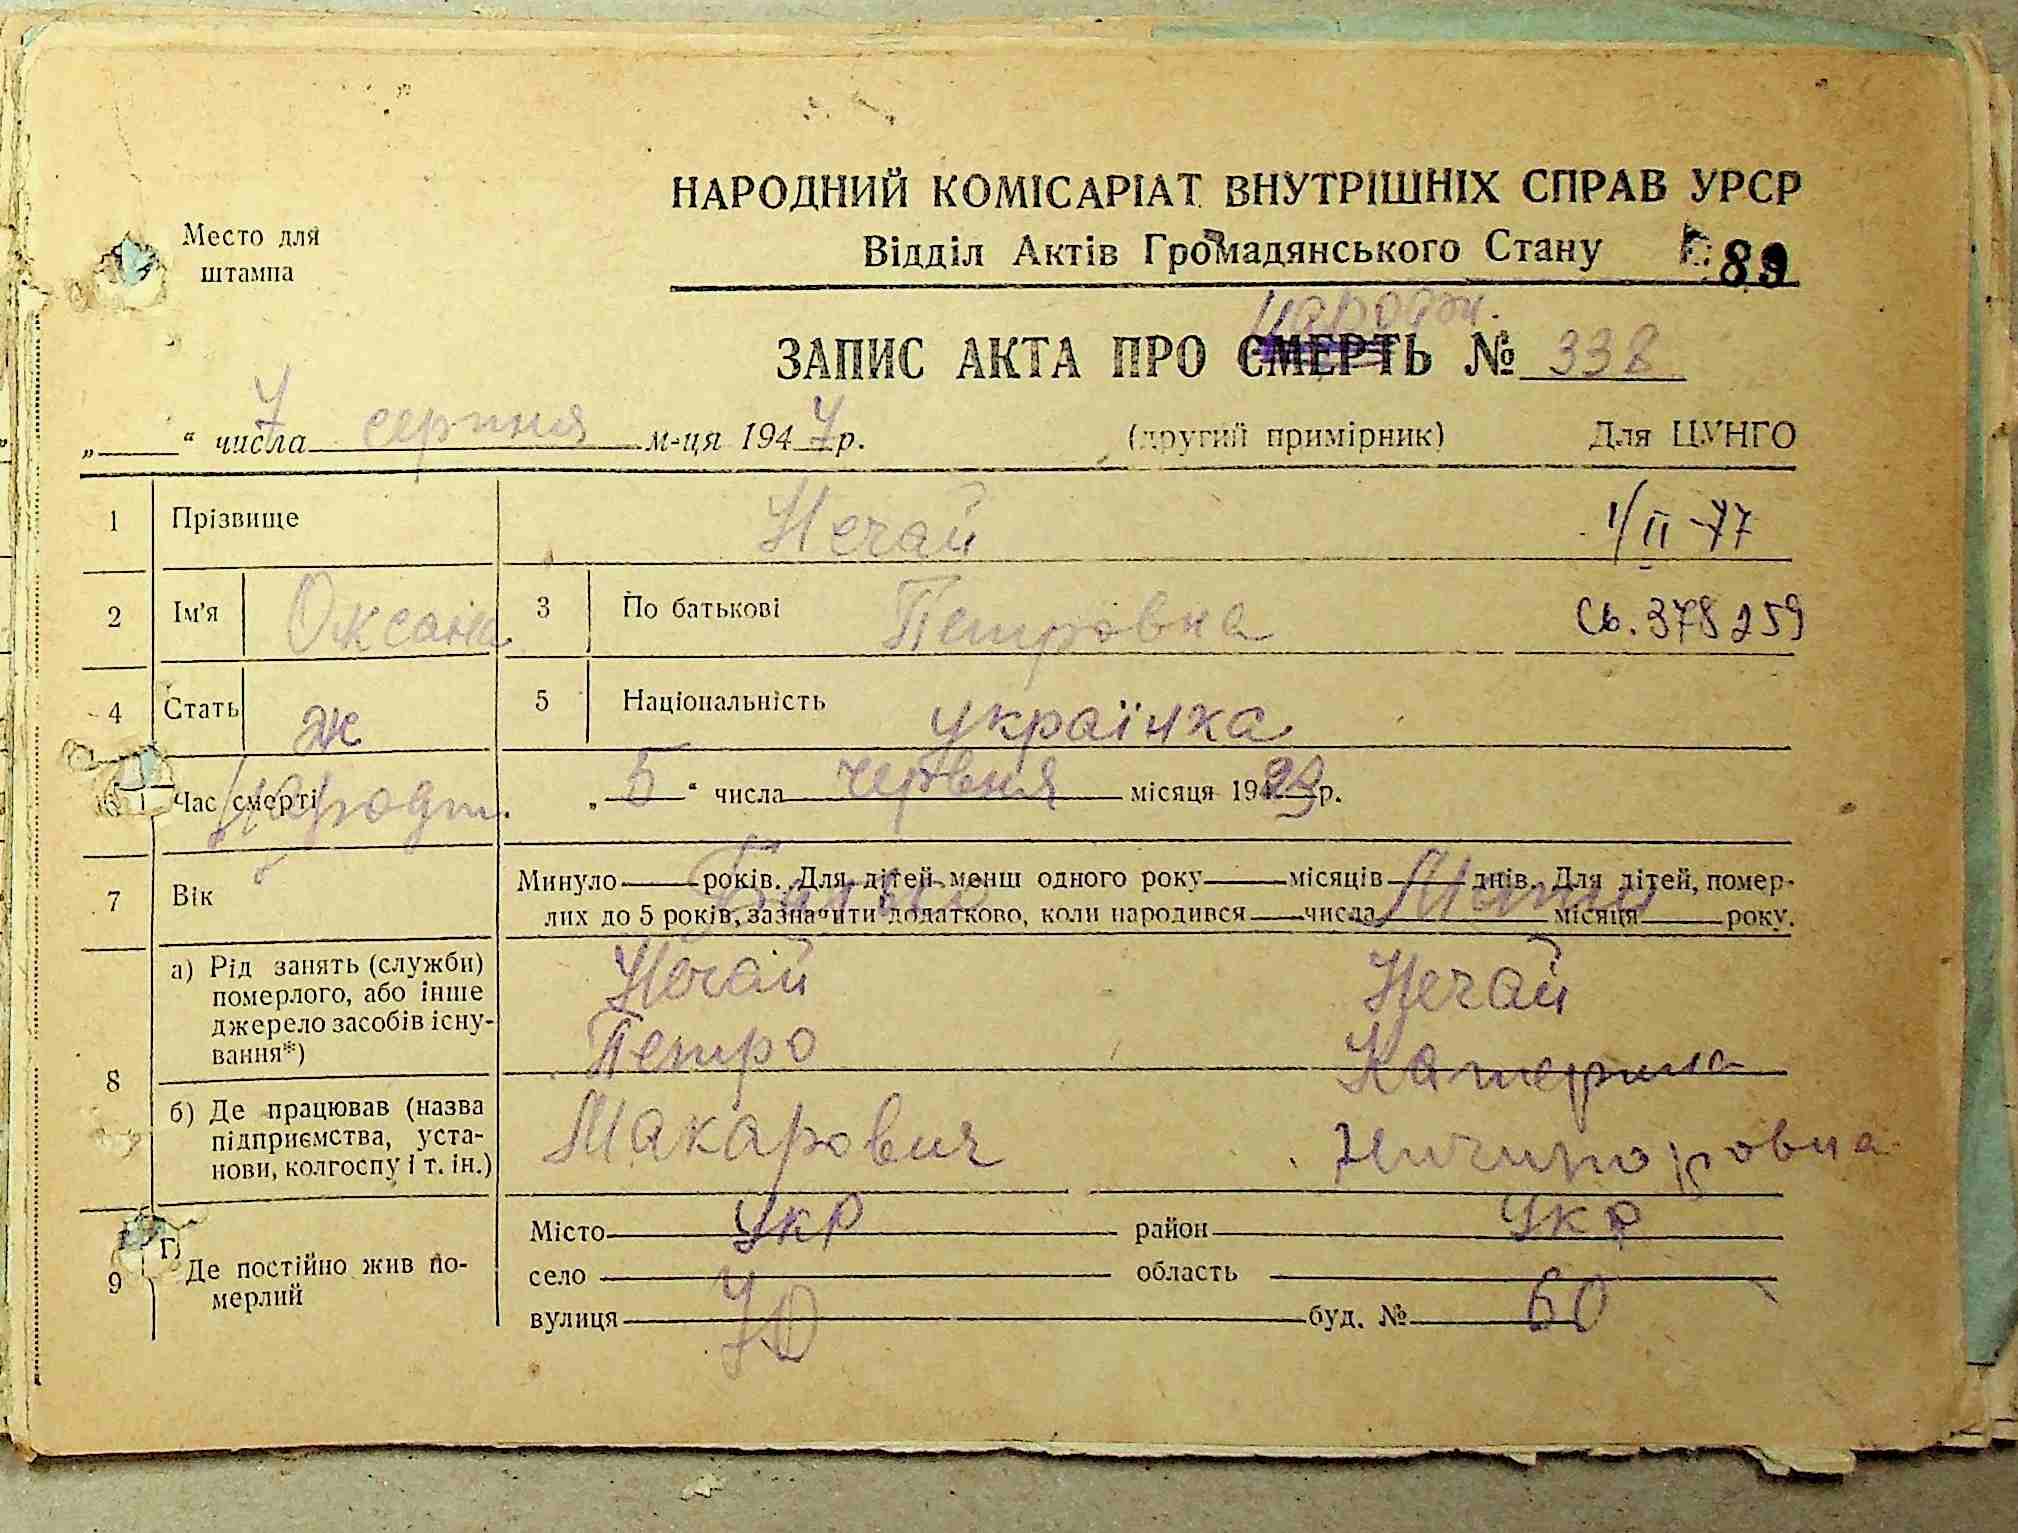 Место для
штампа
НАРОДНИЙ КОМІСАРІАТ ВНУТРІШНІХ СПРАВ УРСР
Відділ Актів Громадянського Стану
89
народж.
ЗАПИС АКТА ПРО СМЕРТЬ № 338
„ 7 “ числа серпня м-ця 1947 р. (другий примірник) Для ЦУНГО
1 Прізвище Нечай 1/II-77
2 Ім'я Оксана 3 По батькові Петровна Св. 378259
4 Стать ж 5 Національність українка
6 Час смерті народж. „ 5 “ числа червня місяця 1929 р.
7 Вік Минуло років. Для дітей менш одного року місяців днів. Для дітей, помер-
лих до 5 років, зазначити додатково, коли народився числа місяця року.
Батько Мати
8 а) Рід занять (служби)
померлого, або інше
джерело засобів існу-
вання*)
Нечай Нечай
Петро Катерина
б) Де працював (назва
підприємства, уста-
нови, колгоспу і т. ін.)
Макарович Ничипоровна
9 Де постійно жив по-
мерлий
Місто укр район укр
село область
вулиця 70 буд. № 60